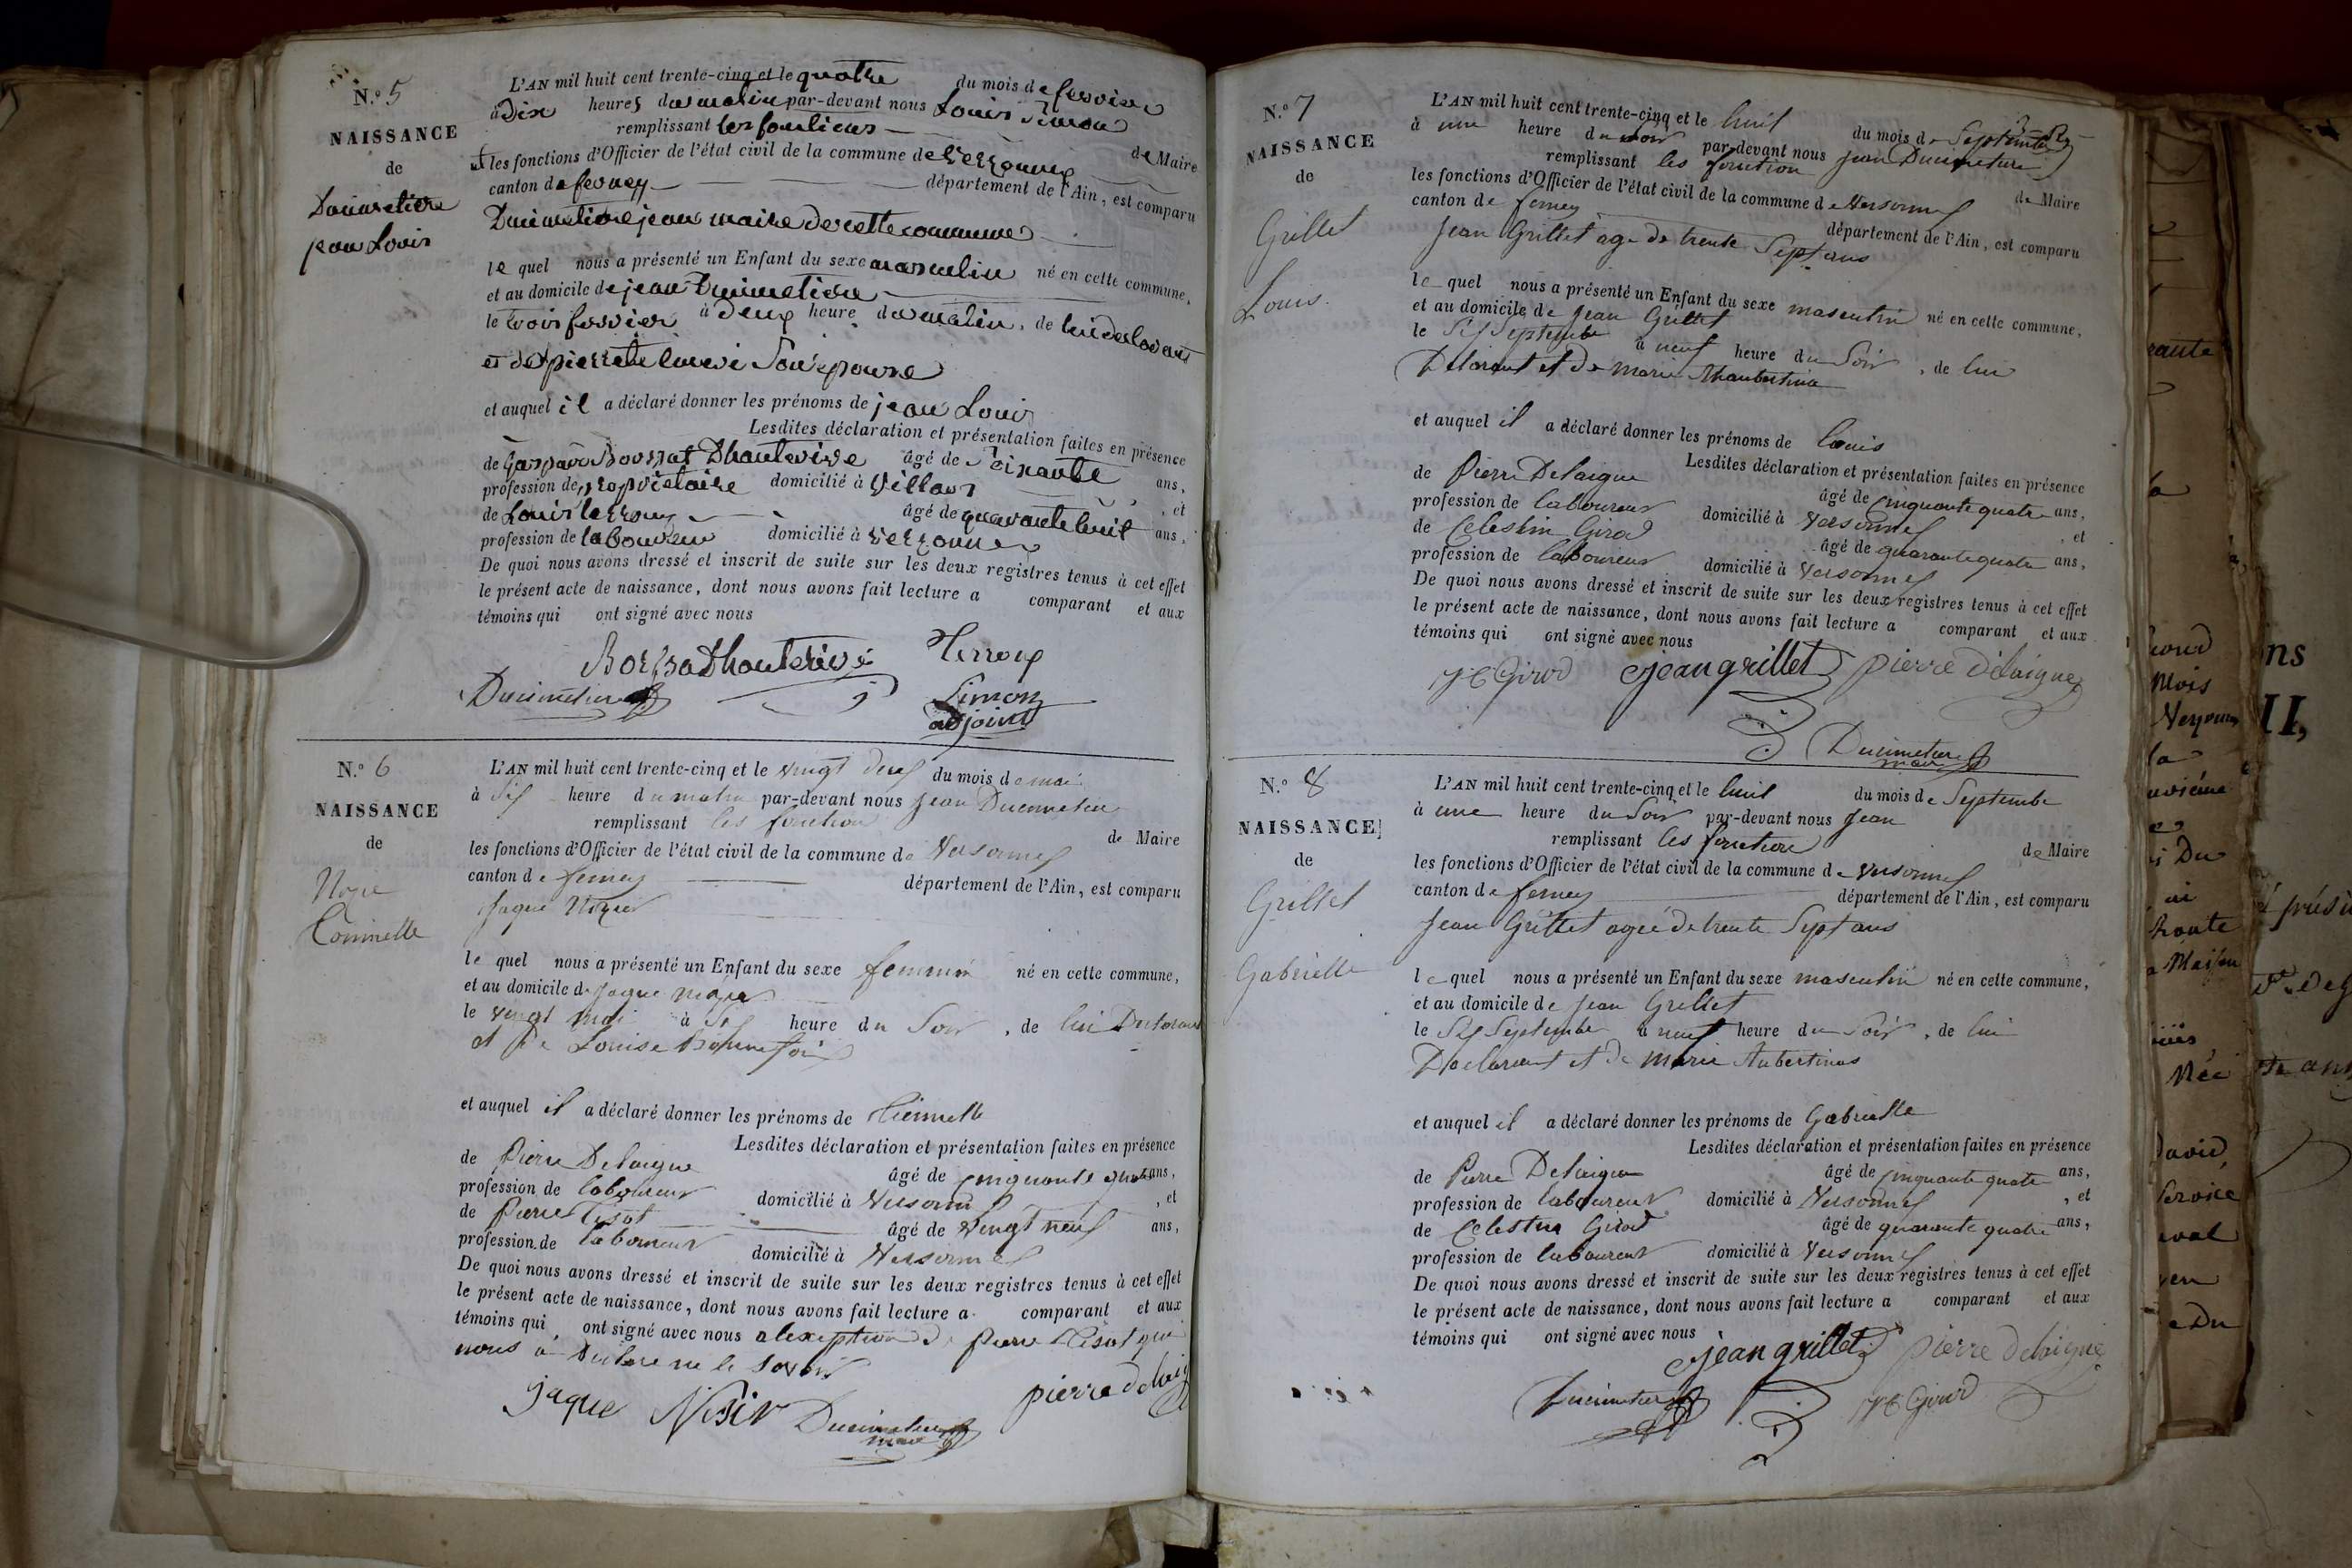 N.º 5
NAISSANCE
de
Ducimetiere
jean Louis
L'AN mil huit cent trente-cinq et le quatre du mois de fevrier
à Dix heures du matin par-devant nous Louis Simon
remplissant les fontions de Maire
les fonctions d'Officier de l'état civil de la commune de
canton de ferney département de l'Ain, est comparu
Ducimetiere jean maire de cette commune
le quel nous a présenté un Enfant du sexe masculin né en cette commune,
et au domicile de jean Ducimetiere
le trois fevrier à deux heure du matin, de lui
et de pierrette Son epouse
et auquel il a déclaré donner les prénoms de jean Louis
Lesdites déclaration et présentation faites en présence
de Dhauterive âgé de ans,
profession de propriétaire domicilié à , et
de Louis âgé de quarante huit ans,
profession de laboureur domicilié à
De quoi nous avons dressé et inscrit de suite sur les deux registres tenus à cet effet
le présent acte de naissance, dont nous avons fait lecture a comparant et aux
témoins qui ont signé avec nous
Ducimetiere Simon
adjoint
N.º 6
NAISSANCE
de
L'AN mil huit cent trente-cinq et le vingt deux du mois de mai
à Six heure du matin par-devant nous Jean Ducimetiere
remplissant les fonction de Maire
les fonctions d'Officier de l'état civil de la commune de Versonnex
canton de ferney département de l'Ain, est comparu
Jaque
le quel nous a présenté un Enfant du sexe feminin né en cette commune,
et au domicile de Jaque
le vingt mai à Six heure du Soir, de lui
et De Louise
et auquel il a déclaré donner les prénoms de
Lesdites déclaration et présentation faites en présence
de Pierre Delaigue âgé de cinquante quatre ans,
profession de laboureur domicilié à Versonnex , et
de Pierre Tisot âgé de vingt neuf ans,
profession de laboureur domicilié à Versonnex
De quoi nous avons dressé et inscrit de suite sur les deux registres tenus à cet effet
le présent acte de naissance, dont nous avons fait lecture a comparant et aux
témoins qui ont signé avec nous a lexeption de pierre Tisot qui
nous a ne le Savoir
jaque Ducimetiere pierre delaig
maire
N.º 7
NAISSANCE
de
Grillet
Louis.
L'AN mil huit cent trente-cinq et le huit du mois de Septembre
à une heure du soir par-devant nous Jean Ducimetiere
remplissant les fonction de Maire
les fonctions d'Officier de l'état civil de la commune de Versonnex
canton de ferney département de l'Ain, est comparu
Jean Grillet age de trente Sept ans
le quel nous a présenté un Enfant du sexe masculin né en cette commune,
et au domicile de Jean Grillet
le Six Septembre à neuf heure du Soir, de lui
Declarant et De marie
et auquel il a déclaré donner les prénoms de louis
Lesdites déclaration et présentation faites en présence
de Pierre Delaigue âgé de cinquante quatre ans,
profession de laboureur domicilié à Versonnex , et
de Celestin Girod âgé de quarante quatre ans,
profession de laboureur domicilié à Versonnex
De quoi nous avons dressé et inscrit de suite sur les deux registres tenus à cet effet
le présent acte de naissance, dont nous avons fait lecture a comparant et aux
témoins qui ont signé avec nous
Girod jean grillet pierre delaigue
Ducimetiere
maire
N.º 8
NAISSANCE
de
Grillet
Gabrielle
L'AN mil huit cent trente-cinq et le huit du mois de Septembre
à une heure du Soir par-devant nous Jean
remplissant les fonction de Maire
les fonctions d'Officier de l'état civil de la commune de Versonnex
canton de ferney département de l'Ain, est comparu
Jean Grillet agé de trente Sept ans
le quel nous a présenté un Enfant du sexe masculin né en cette commune,
et au domicile de Jean Grillet
le Six Septembre à neuf heure du Soir, de lui
Declarant et De Marie Aubertinas
et auquel il a déclaré donner les prénoms de Gabrielle
Lesdites déclaration et présentation faites en présence
de Pierre Delaigue âgé de cinquante quatre ans,
profession de laboureur domicilié à Versonnex , et
de Celestin Girod âgé de quarante quatre ans,
profession de laboureur domicilié à Versonnex
De quoi nous avons dressé et inscrit de suite sur les deux registres tenus à cet effet
le présent acte de naissance, dont nous avons fait lecture a comparant et aux
témoins qui ont signé avec nous
jean grillet pierre delaigue
Ducimetiere Girod